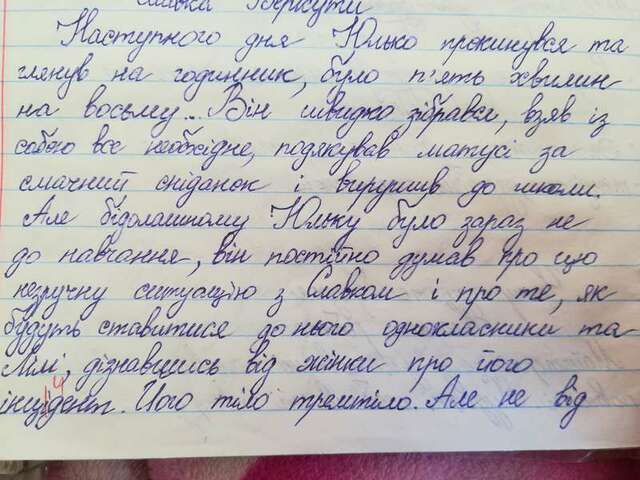 Славка Беркути
Наступного дня Юлько прокинувся та
глянув на годинник, було п'ять хвилин
на восьму... Він швидко зібрався, взяв із
собою все необхідне, подякував матусі за
смачний сніданок і вирушив до школи.
Але бідолашному Юльку було зараз не
до навчання, він постійно думав про цю
незручну ситуацію з Славком і про те, як
будуть ставитися до нього однокласники та
Лілі, дізнавшись від жінки про його
інцідент. Його тіло тремтіло. Але не від